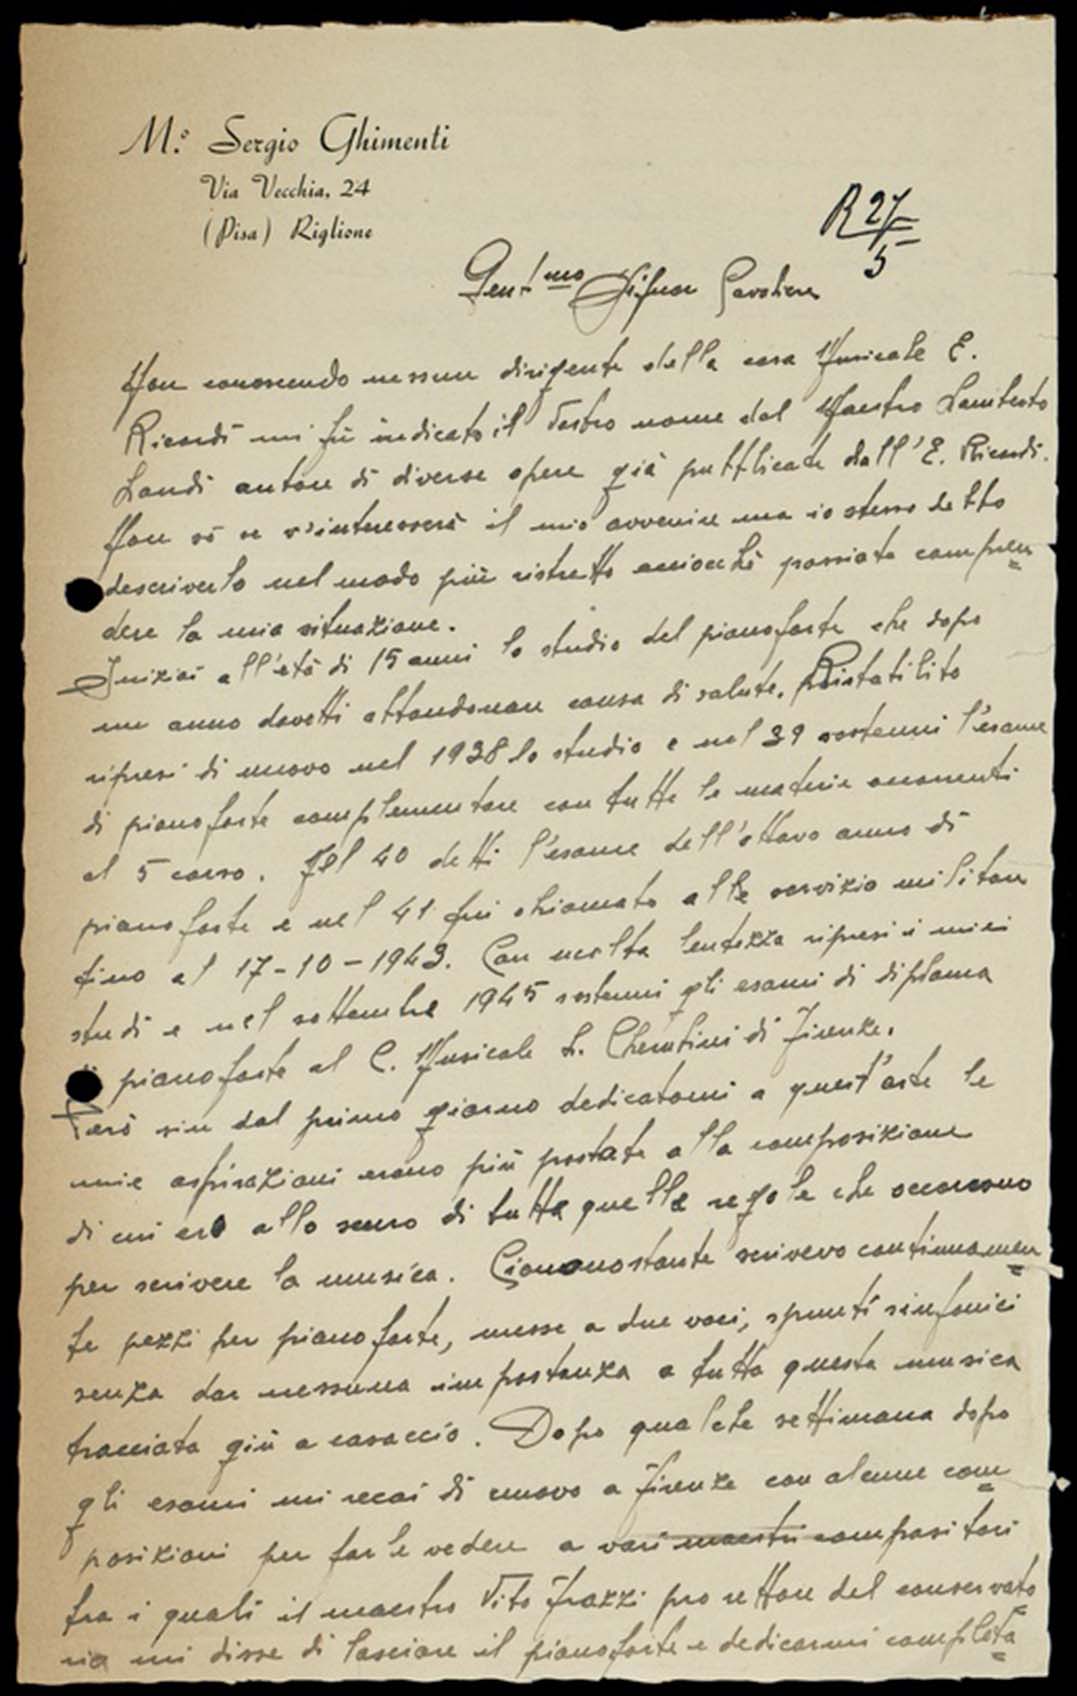 M.º Sergio Ghimenti
Via Vecchia, 24
(Pisa) Riglione
R 27/5
Gent.mo Signor Cavaliere
Non conoscendo nessun dirigente della casa Musicale E.
Ricordi mi fù indicato il Vostro nome dal Maestro Lamberto
Landi autore di diverse opere già pubblicate dall'E. Ricordi.
Non sò se v'interesserà il mio avvenire ma io stesso debbo
descriverlo nel modo più ristretto acciocchè possiate compren=
dere la mia situazione.
Iniziai all'età di 15 anni lo studio del pianoforte che dopo
un anno dovetti abbandonare causa di salute. Ristabilito
ripresi di nuovo nel 1938 lo studio e nel 39 sostenni l'esame
di pianoforte complementare con tutte le materie occorrenti
al 5 corso. Nel 40 detti l'esame dell'ottavo anno di
pianoforte e nel 41 fui chiamato alle servizio militare
fino al 17-10-1943. Con molta lentezza ripresi i miei
studi e nel settembre 1945 sostenni gli esami di diploma
di pianoforte al C. Musicale L. Cherubini di Firenze.
Però sin dal primo giorno dedicatomi a quest'arte le
mie aspirazioni erano più portate alla composizione
di cui ero allo scuro di tutte quelle regole che occorrono
per scrivere la musica. Ciononostante scrivevo continuamen=
te pezzi per pianoforte, messe a due voci, spunti sinfonici
senza dar nessuna importanza a tutta questa musica
tracciata giù a casaccio. Dopo qualche settimana dopo
gli esami mi recai di nuovo a Firenze con alcune com=
posizioni per farle vedere a vari maestri compositori
fra i quali il maestro Vito Frazzi pro rettore del conservato=
rio mi disse di lasciare il pianoforte e dedicarmi completa=